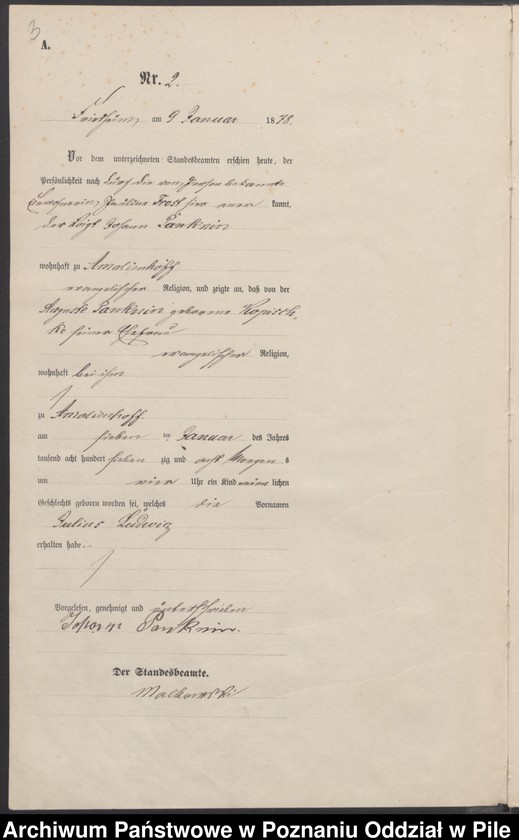 3
A.
Nr. 2.
Friedheim, am 9 Januar 1878.
Vor dem unterzeichneten Standesbeamten erschien heute, der
Persönlichkeit nach durch die von Person bekannte
Pauline Trost hier kannt,
der Vogt Johann Panknin
wohnhaft zu Amalienhoff
evangelischer Religion, und zeigte an, daß von der
Auguste Panknin geborene Kopischke
ke seiner Ehefrau
evangelischer Religion,
wohnhaft bei ihm
zu Amalienhoff.
am sieben ten Januar des Jahres
tausend acht hundert sieben zig und acht Morgens
um vier Uhr ein Kind männ lichen
Geschlechts geboren worden sei, welches die Vornamen
Julius Ludwig
erhalten habe.
Vorgelesen, genehmigt und unterschrieben
Johann Panknin.
Der Standesbeamte.
Malkowski
Archiwum Państwowe w Poznaniu Oddział w Pile